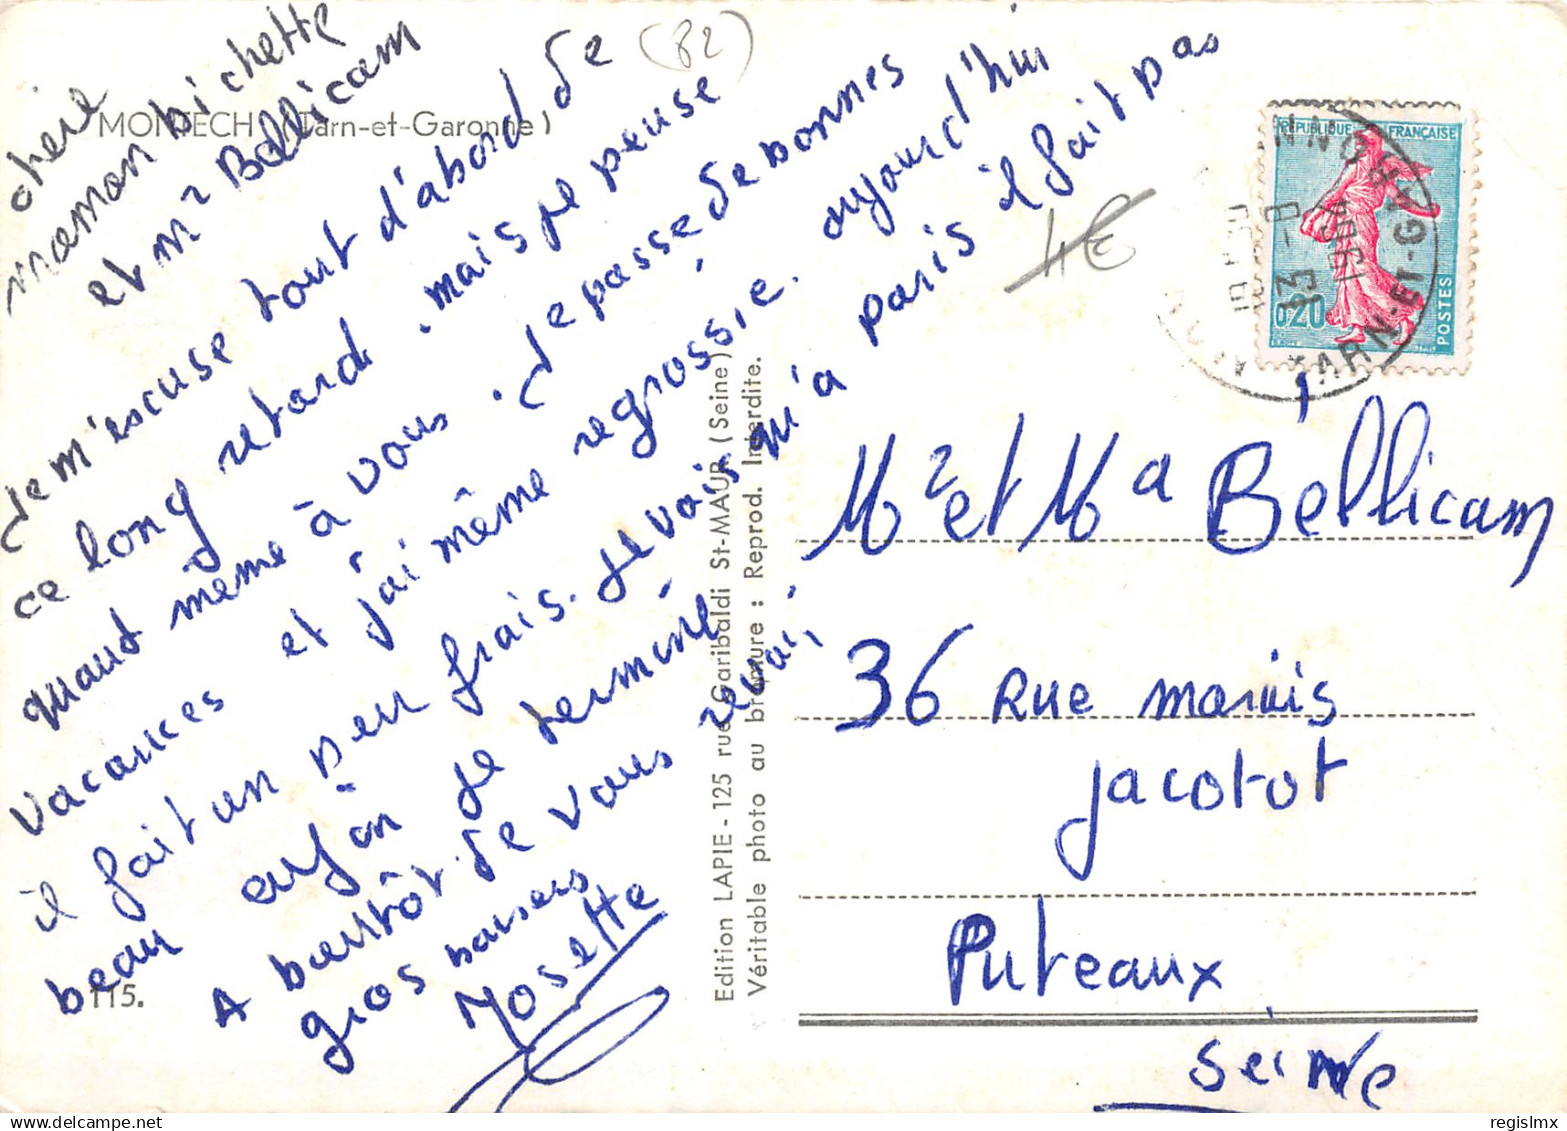 MONTECH (Tarn-et-Garonne)
(82)
cherie
maman bichette
et Mr Bellicam
Je m'escuse tout d'abord, de
ce long retard. mais je pense
quant même à vous. Je passe de bonnes
vacances et j'ai même regrossie. aujourd'hui
il fait un peu frais. Je vais qu'a paris il fait pas
beau
A bientôt de vous revoir,
gros baisers
Josette
115.
Edition LAPIE - 125 rue Garibaldi St-MAUR (Seine)
Véritable photo au bromure : Reprod. Interdite.
4€
REPUBLIQUE FRANÇAISE
0,20
POSTES
13 - 8
1964
TARN-ET-GARONNE
Mr et Ma Bellicam
36 Rue marius
jacotot
Puteaux
Seine
regislmx